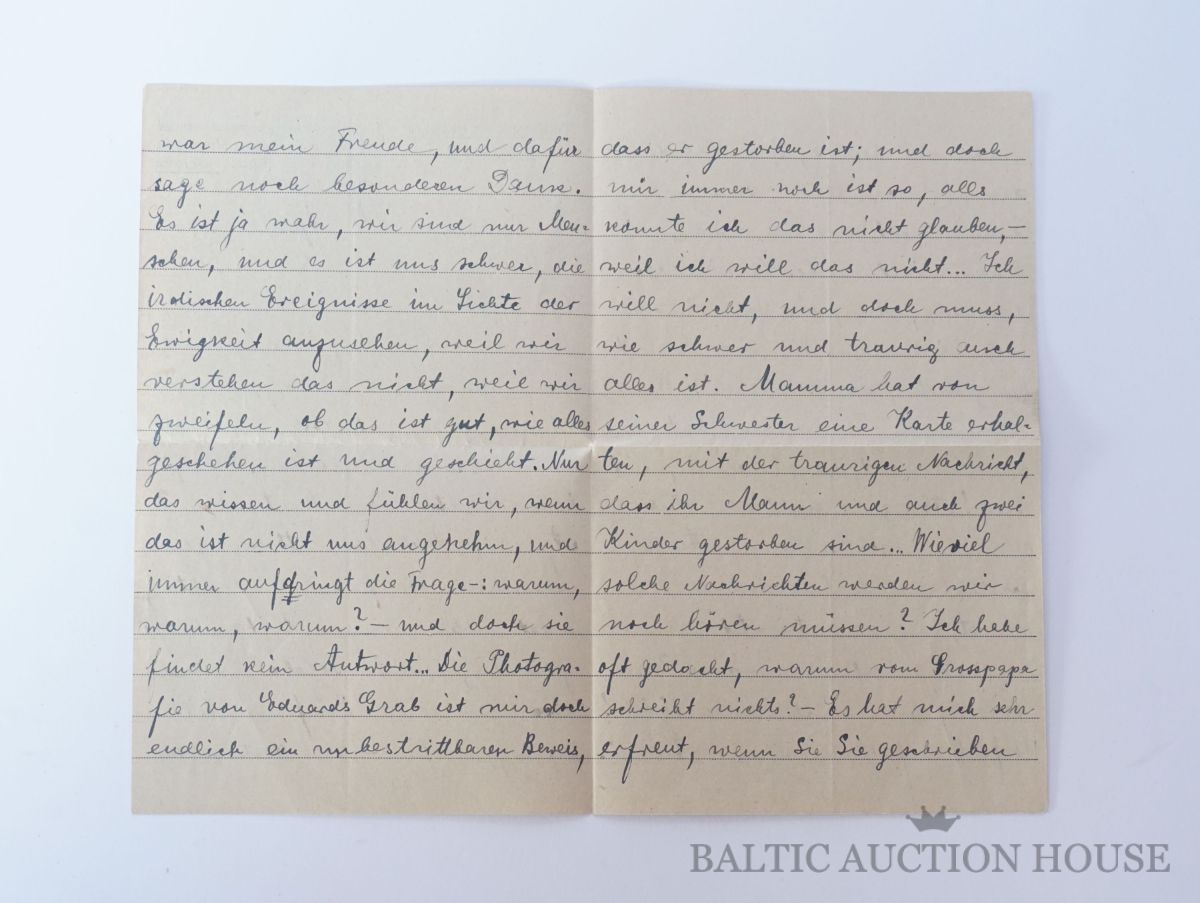 war mein Freude, und dafür
sage noch besonderen Dank.
Es ist ja wahr, wir sind nur Men-
schen, und es ist uns schwer, die
irdischen Ereignisse im Lichte der
Ewigkeit anzusehen, weil wir
verstehen das nicht, weil wir
zweifeln, ob das ist gut, wie alles
geschehen ist und geschieht. Nur
das wissen und fühlen wir, wenn
das ist nicht uns angenehm, und
immer aufdringt die Frage-: warum,
warum, warum? — und doch sie
findet kein Antwort... Die Photogra-
fie von Eduards Grab ist mir doch
endlich ein unbestrittbaren Beweis,
dass er gestorben ist; und doch
mir immer noch ist so, als
konnte ich das nicht glauben, —
weil ich will das nicht... Ich
will nicht, und doch muss,
wie schwer und traurig auch
alles ist. Mamma hat von
seiner Schwester eine Karte erhal-
ten, mit der traurigen Nachricht,
dass ihr Mann und auch zwei
Kinder gestorben sind... Wieviel
solche Nachrichten werden wir
noch hören müssen? Ich habe
oft gedacht, warum vom Grosspapa
schreibt nichts? — Es hat mich sehr
erfreut, wenn Sie Sie geschrieben
BALTIC AUCTION HOUSE